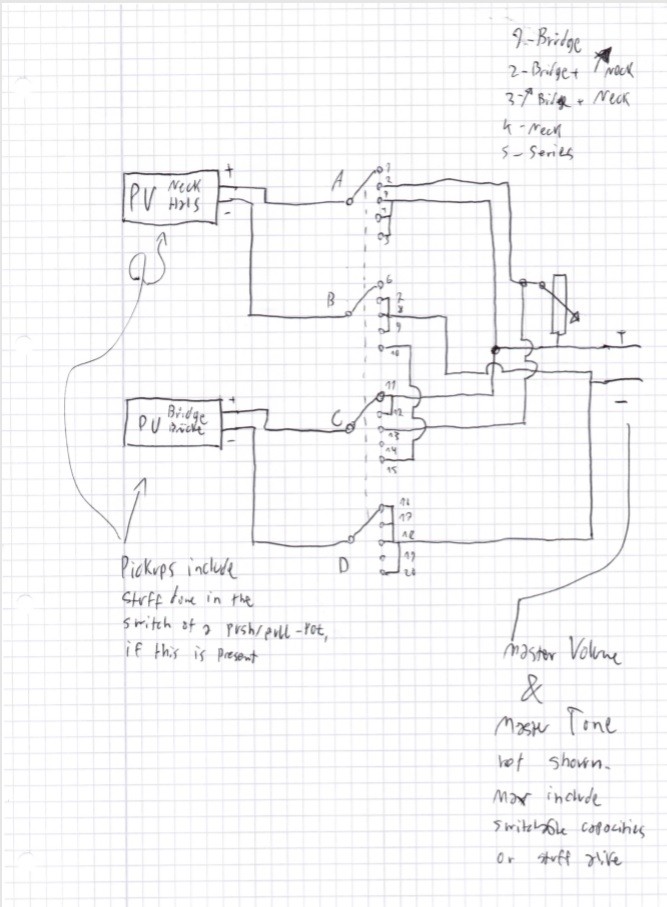 1-Bridge
2-Bridge+ ↑ Neck
3-↑ Bidge + Neck
4-Neck
5-Series
PV Neck Hals
+
-
A
1
2
3
4
5
B
6
7
8
9
10
T
-
PV Bridge
+
-
C
11
12
13
14
15
D
16
17
18
19
20
Pickups include
stuff done in the
switch of a push/pull-Pot,
if this is present
Master Volume
&
Master Tone
not shown.
May include
switchable capacities
or stuff alike